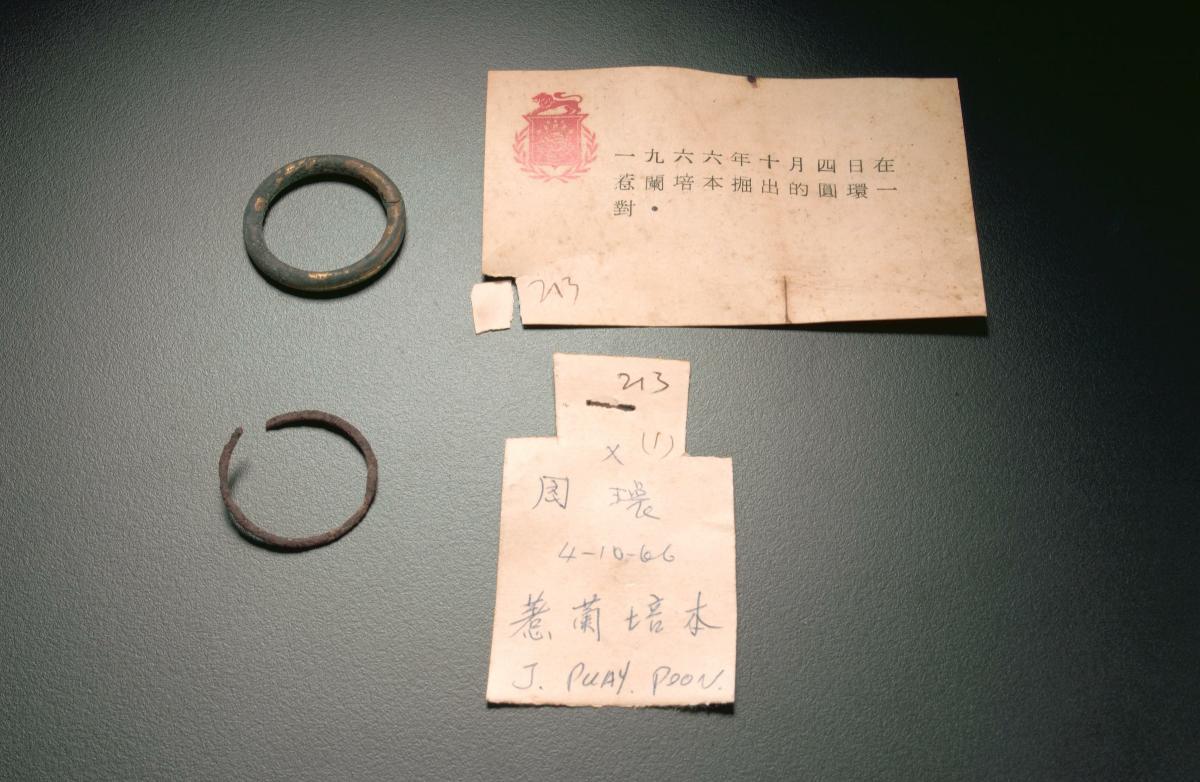 一九六六年十月四日在
惹蘭培本掘出的圓環一
對．
213
213
X (1)
周 環
4-10-66
惹蘭培本
J. PUAY. POON.